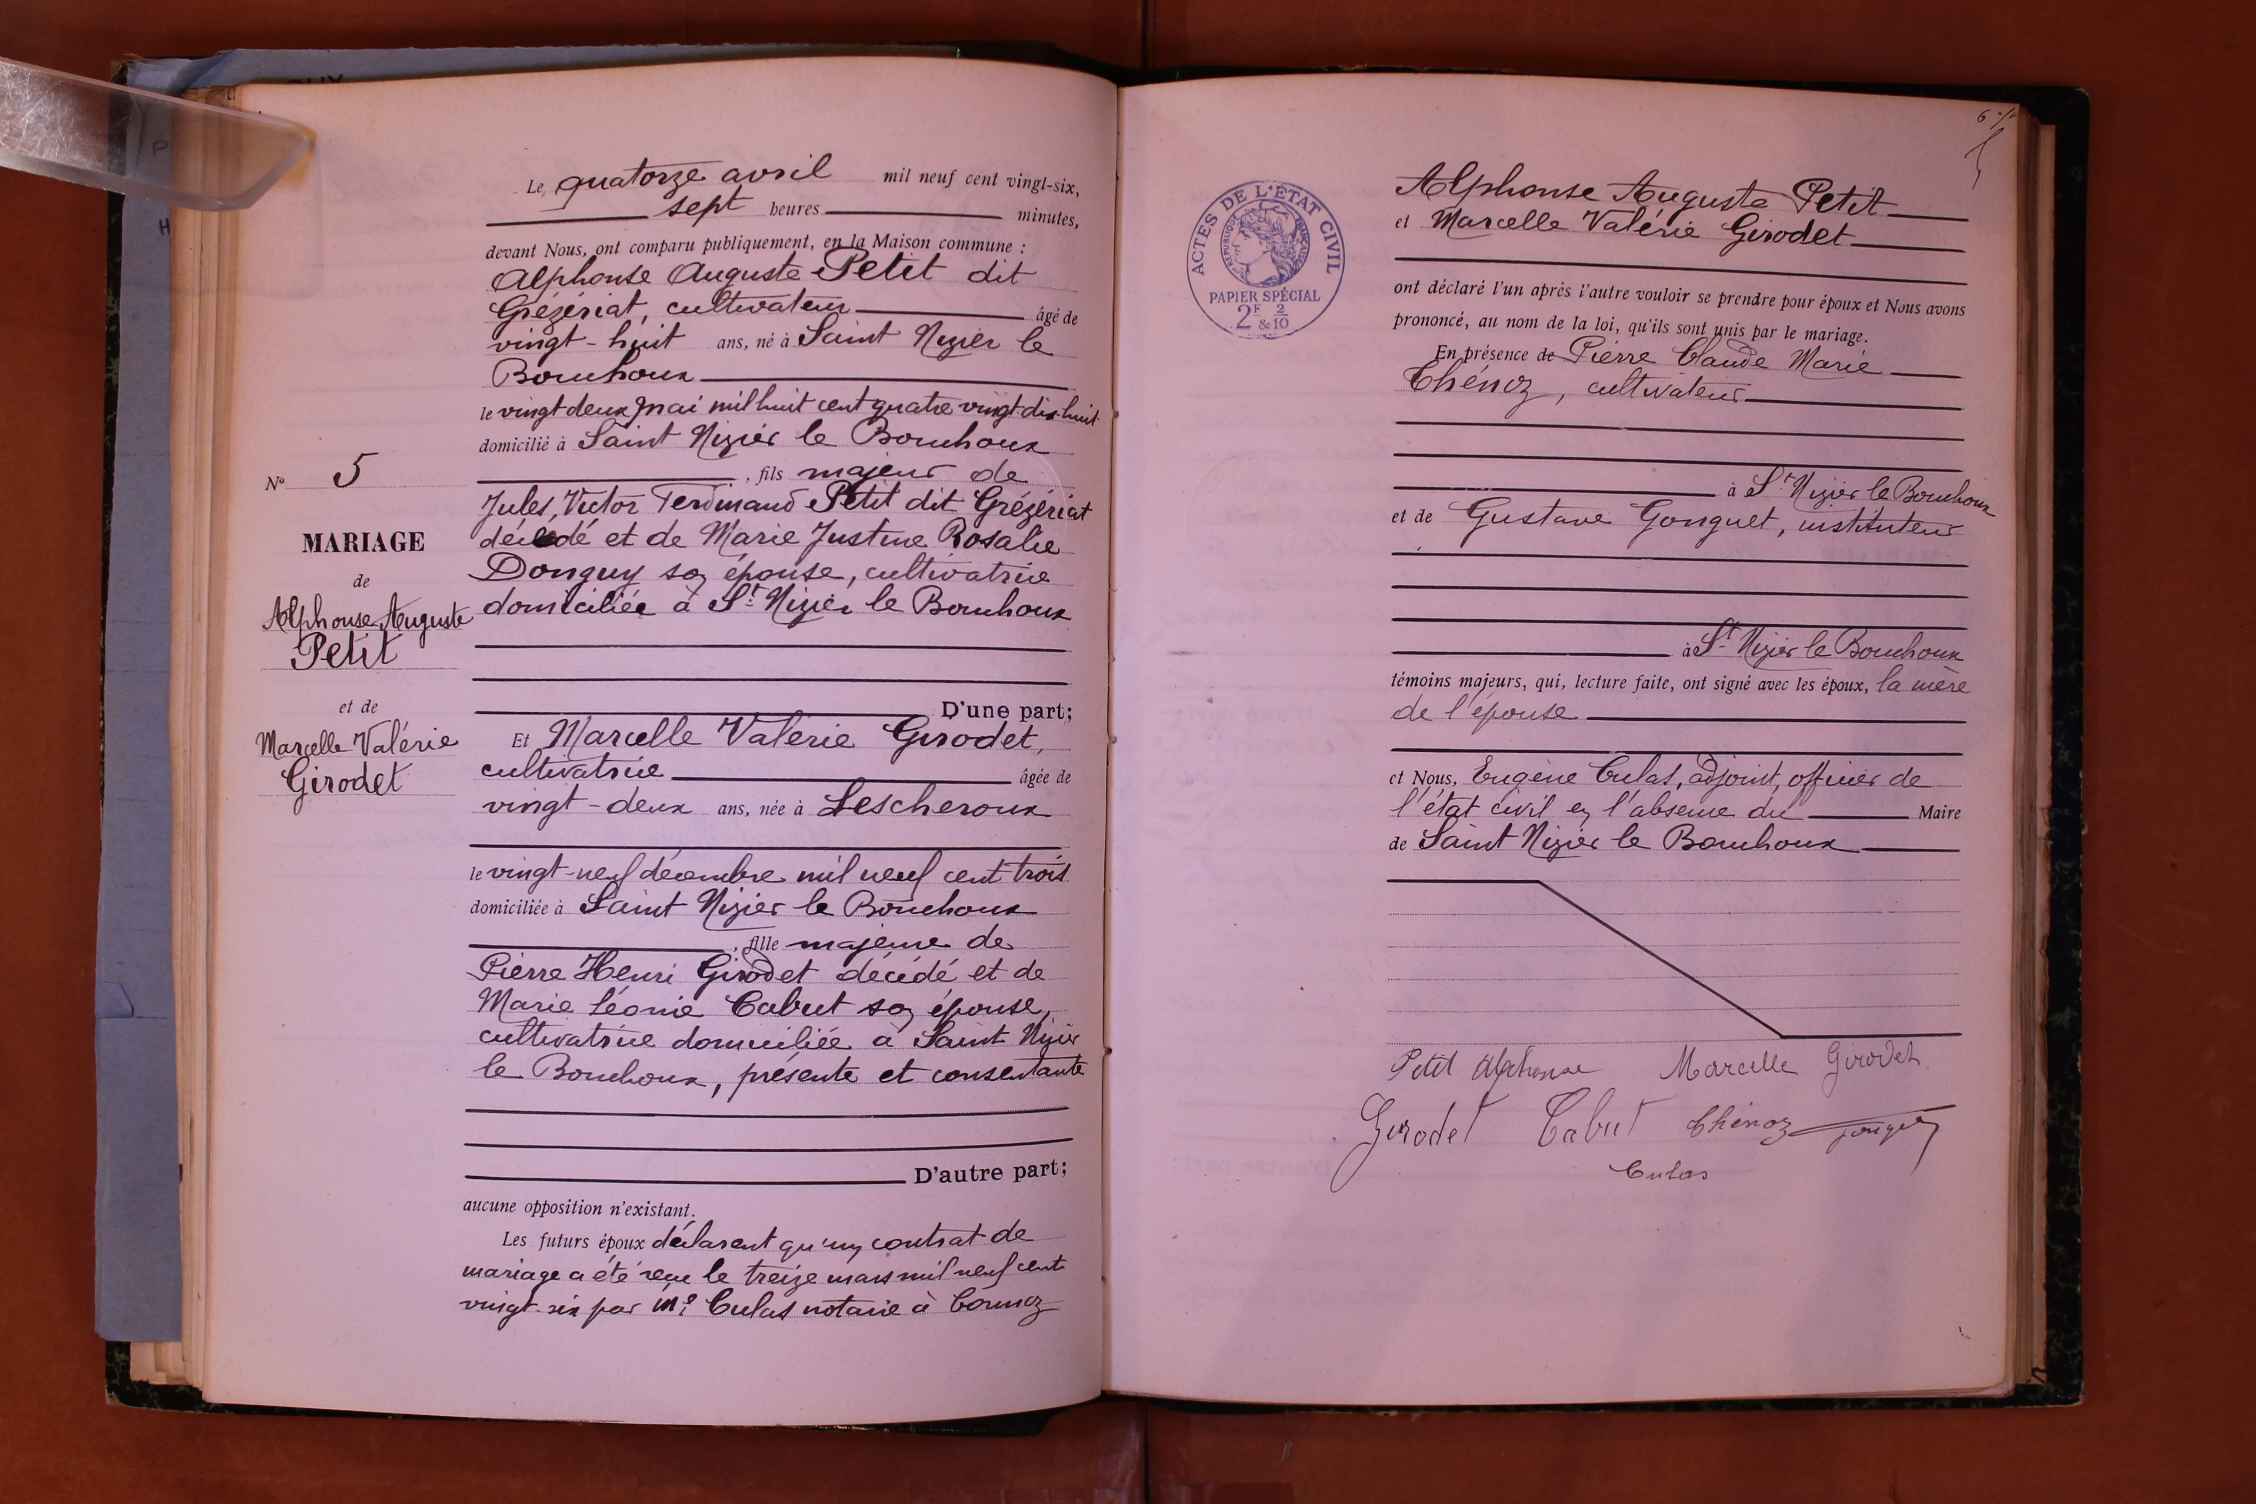 Le quatorze avril mil neuf cent vingt-six,
sept heures minutes,
devant Nous, ont comparu publiquement, en la Maison commune :
Alphonse Auguste Petit dit
Grézériat, cultivateur âgé de
vingt-huit ans, né à Saint Nizier le
Bouchoux
le vingt deux mai mil huit cent quatre vingt dix-huit
domicilié à Saint Nizier le Bouchoux
, fils majeur de
Jules, Victor Ferdinand Petit dit Grézériat
décédé et de Marie Justine Rosalie
Donguy son épouse, cultivatrice
domiciliée à St Nizier le Bouchoux
D'une part;
Nº 5
MARIAGE
de
Alphonse Auguste
Petit
et de
Marcelle Valérie
Girodet
Et Marcelle Valérie Girodet,
cultivatrice âgée de
vingt-deux ans, née à Lescheroux
le vingt-neuf décembre mil neuf cent trois
domiciliée à Saint Nizier le Bouchoux
, fille majeure de
Pierre Henri Girodet décédé et de
Marie Léonie Cabut son épouse,
cultivatrice domiciliée à Saint Nizier
le Bouchoux, présente et consentante
D'autre part;
aucune opposition n'existant.
Les futurs époux déclarent qu'un contrat de
mariage a été reçu le treize mars mil neuf cent
vingt-six par Me Culas notaire à Cormoz
ACTES DE L'ÉTAT CIVIL
RÉPUBLIQUE FRANÇAISE
PAPIER SPÉCIAL
2F & 2/10
Alphonse Auguste Petit
et Marcelle Valérie Girodet
ont déclaré l'un après l'autre vouloir se prendre pour époux et Nous avons
prononcé, au nom de la loi, qu'ils sont unis par le mariage.
En présence de Pierre Claude Marie
Chénoz, cultivateur
à St Nizier le Bouchoux
et de Gustave Gonguet, instituteur
à St Nizier le Bouchoux
témoins majeurs, qui, lecture faite, ont signé avec les époux, la mère
de l'épouse
et Nous, Eugène Culas, adjoint, officier de
l'état civil en l'absence du Maire
de Saint Nizier le Bouchoux
Petit Alphonse Marcelle Girodet
Girodet Cabut Chénoz Gonguet
Culas